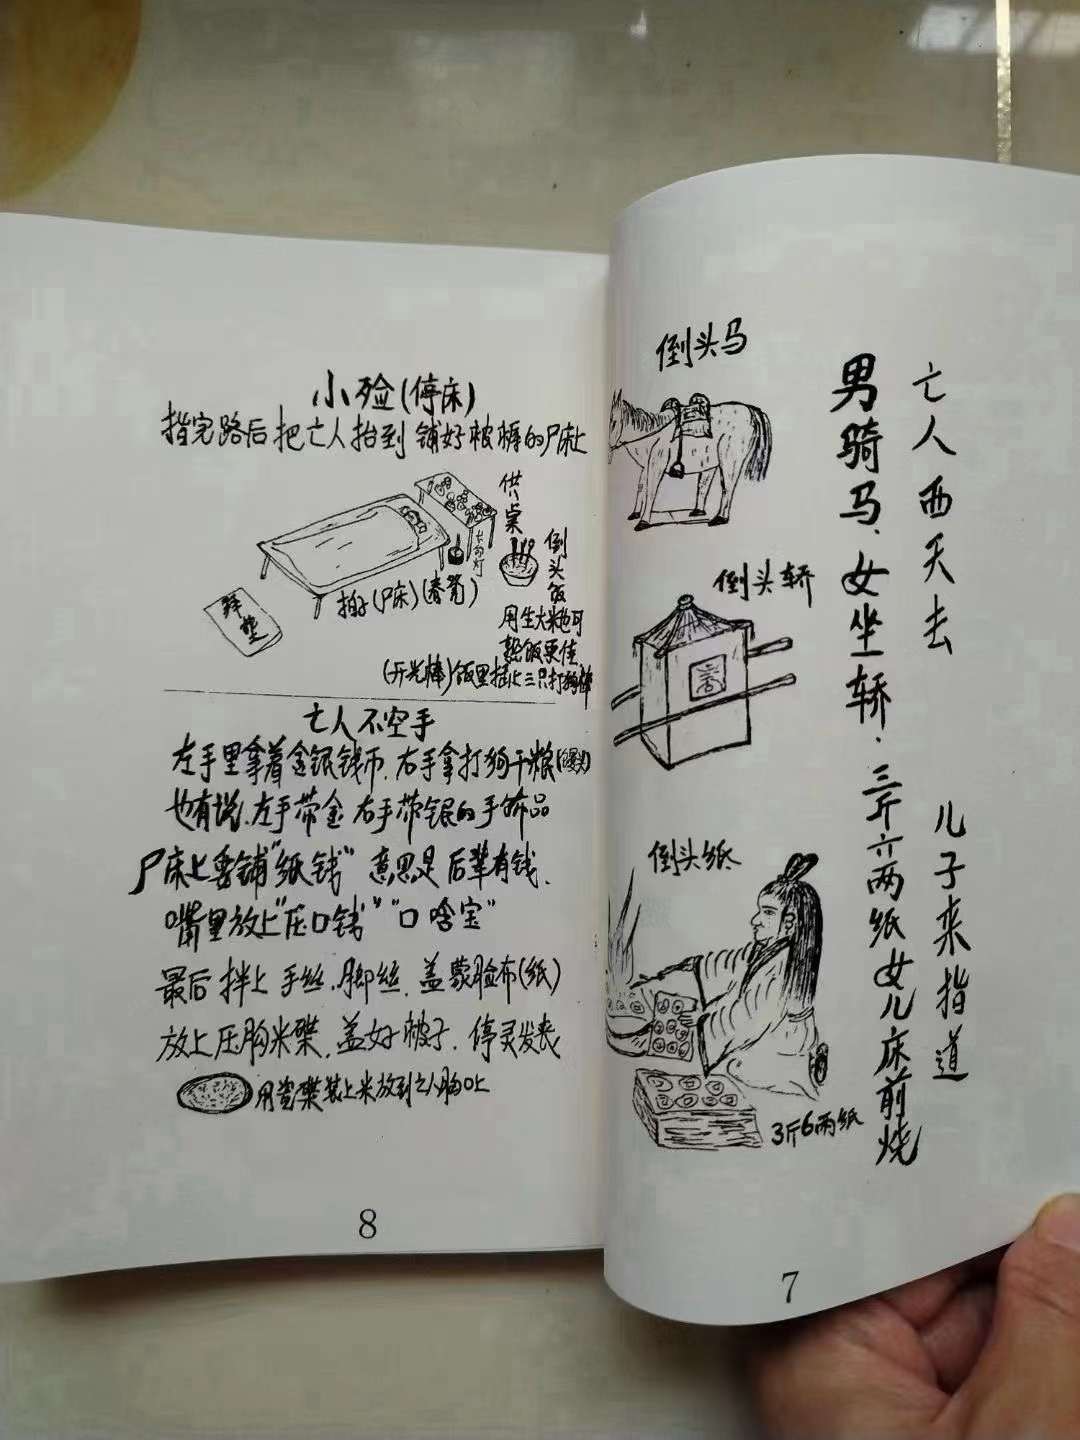 亡人西天去 儿子来指道
男骑马、女坐轿.三斤六两纸女儿床前烧
倒头马
倒头轿
倒头纸
3斤6两纸
7
小殓(停床)
指完路后把亡人抬到铺好被褥的尸床上
供桌
长明灯
倒头饭
拍子(尸床)(春凳)
拜垫
用生大米也可
熟饭更佳
(开光棒)饭里插上三只打狗棒
亡人不空手
左手里拿着金银钱币.右手拿打狗干粮
也有说.左手带金 右手带银的手饰品
尸床上要铺“纸钱” 意思是后辈有钱.
嘴里放上“压口钱”“口啥宝”
最后 拌上 手丝.脚丝.盖蒙脸布(纸)
放上压胸米碟.盖好被子.停灵发丧
用瓷碟装上米放到亡人胸口上
8